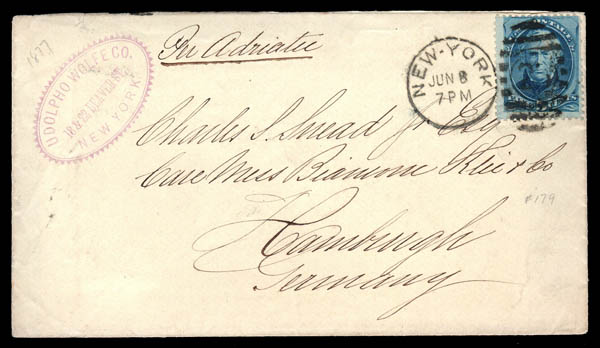 1877
UDOLPHO WOLFE CO.
NEW YORK
Per Adriatic
NEW-YORK
JUN 8
7PM
Charles S. Snead Jr Esq
Care Mess Biancone & Co
Hamburgh
Germany
#179